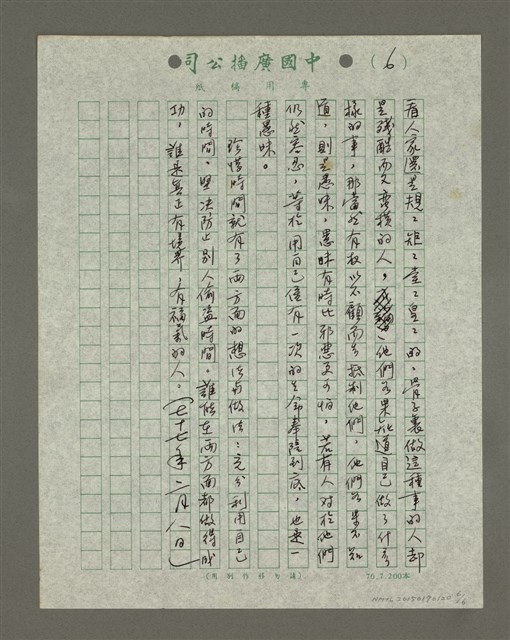 中國廣播公司
(6)
專用稿紙
看人家還是規:矩:堂:皇:的,骨子裏做這種事的人却
是殘酷而又蠻橫的人,他們如果知道自己做了什麼
樣的事,那當然有权以不顧而去抵制他們,他們如果不知
道,則是愚昧,愚昧有時比邪惡更可怕,若有人对於他們
仍然容忍,等於用自己僅有一次的生命奉陪到底,也是一
種愚昧。
珍惜時間就有了兩方面的想法与做法:充分利用自己
的時間,堅决防止別人偷盜時間。誰能在兩方面都做得成
功,誰是真正有境界,有福氣的人。(七十七年二月八日)
(請勿移作別用)
76.7.200本